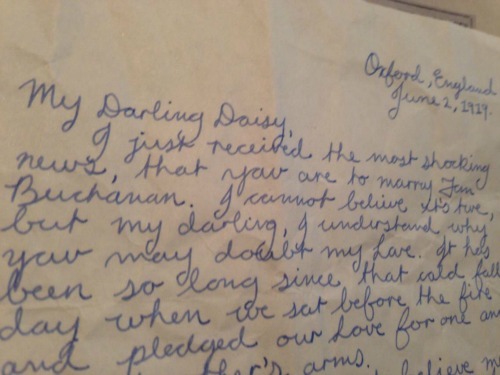 Oxford, England
June 2, 1919.
My Darling Daisy,
I just received the most shocking
news, that you are to marry Tom
Buchanan. I cannot believe it's true,
but my darling, I understand why
you may doubt my love. It has
been so long since that cold fall
day when we sat before the fire
and pledged our love for one an
other's arms.
believe m